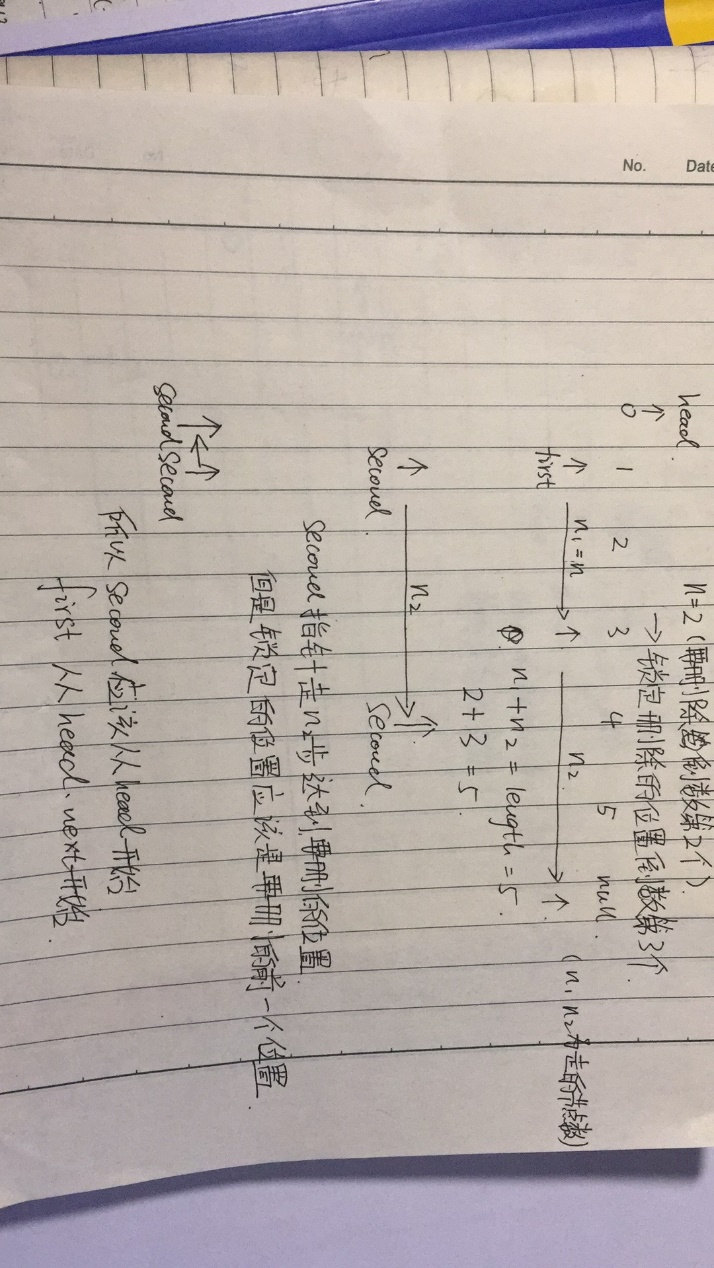 No. Date
n=2 (要删除的倒数第2个).
→锁定删除的位置倒数第3个
head.
↑
0 1 2 3 4 5 null.
↑ n₁=n → ↑ n₂ → ↑. (n₁ n₂为走的节点数)
first
n₁+n₂=length=5.
2+3=5.
↑ n₂ → ↑
second. second.
second指针走n₂步达到要删除位置
但是锁定的位置应该是要删除的前一个位置.
↑←↑
second second
所以second应该从head开始
first 从head.next开始.